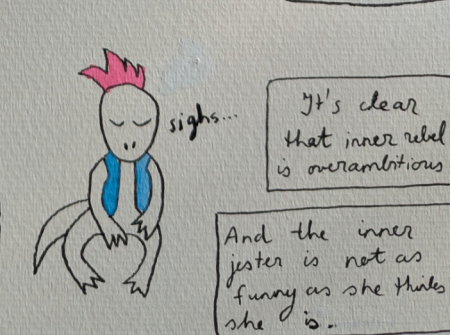 sighs...
It's clear
that inner rebel
is overambitious
And the inner
jester is not as
funny as she thinks
she is.